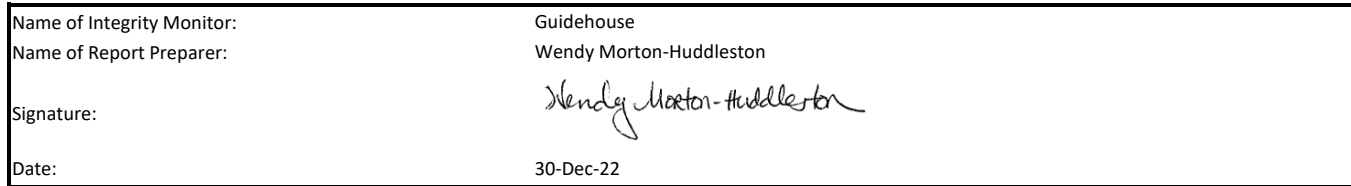 Name of Integrity Monitor: Guidehouse
Name of Report Preparer: Wendy Morton-Huddleston
Wendy Morton-Huddleston
Signature:
Date: 30-Dec-22